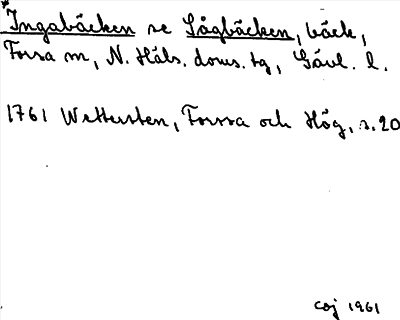 *Ingabäcken se Sågbäcken, bäck,
Forsa sn, N. Häls. doms. tg, Gävl. l.
1761 Wettersten, Forssa och Hög, s. 20
coj 1961